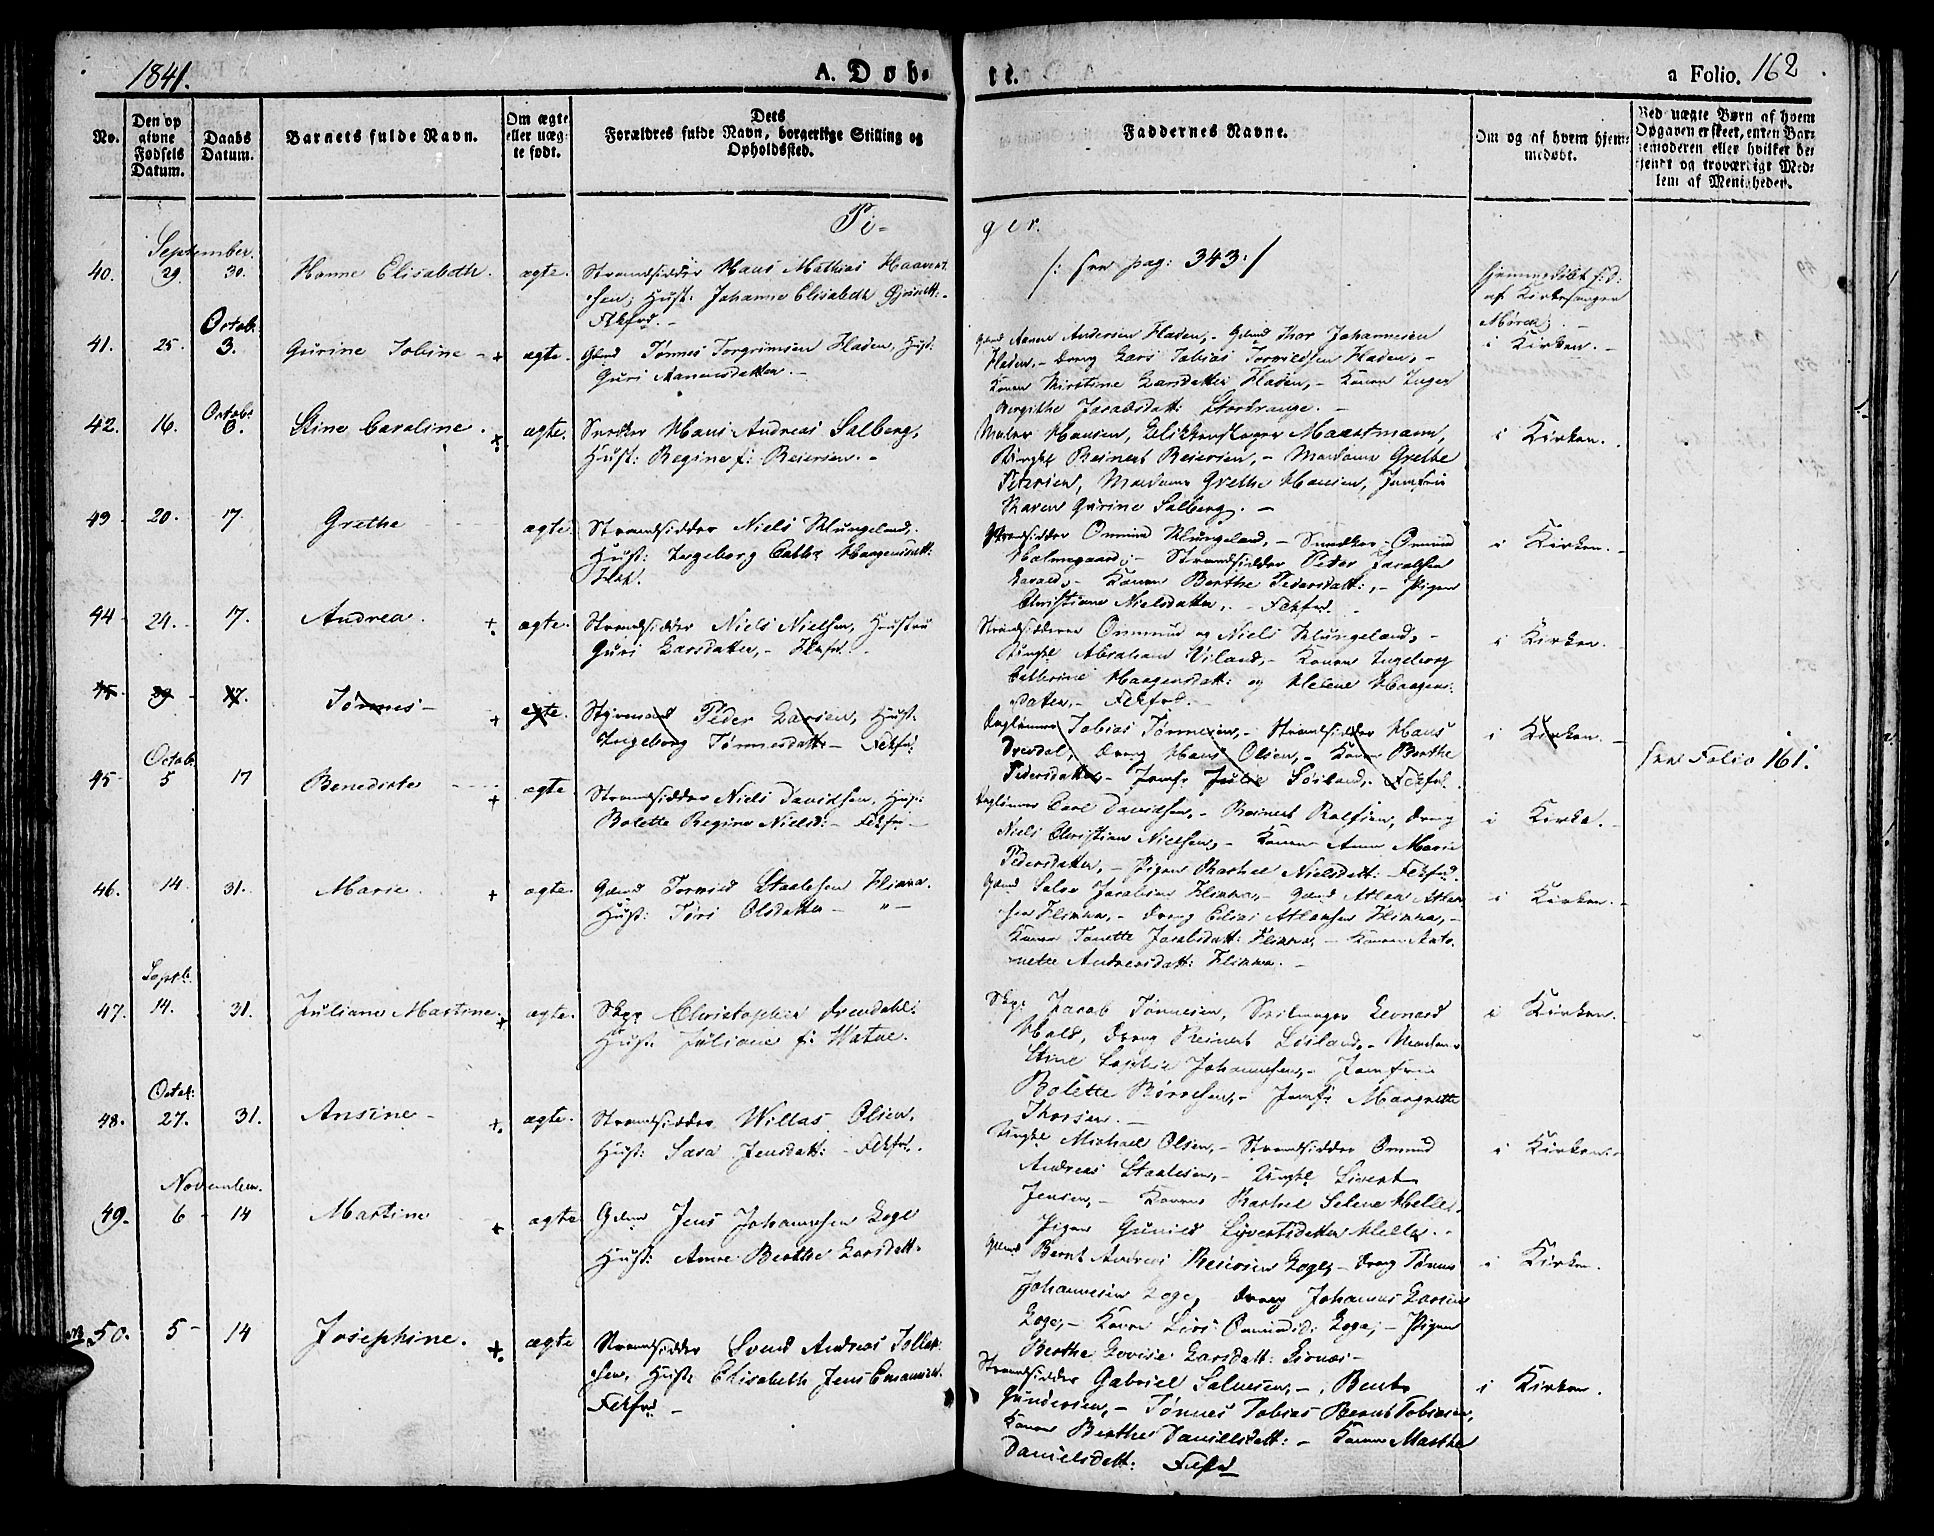 1841.
A. Døb-
te.
a Folio. 162
No.
Den op
givne
Fødsels
Datum.
Daabs
Datum.
Barnets fulde Navn.
Om ægte
eller uæg-
te født.
Dets
Forældres fulde Navn, borgerlige Stilling og
Opholdssted.
Faddernes Navne.
Om og af hvem hjem-
medøbt.
Ved uægte Børn af hvem
Opgaven er skeet, enten Bar-
nemoderen eller hvilket be-
kjendt og troværdigt Med-
lem af Menigheden.
Pi-
ger.
September.
40. 29. 30. Hanne Elisabeth. ægte. Strandsidder Hans Mathias
sen, Hust: Johanne Elisabeth
Fkfrd. -
/: see pag: 343 :/
hjemmedøbt
af Kirkesanger
Octob:
41. 25. 3. Gurine Tobine - + ægte. Gmd Tønnes Torgrimsen Haden, Hust:
Guri Aanensdatter. -
Gmd Aanen Andersen Haden, - Gmd Thor Johannesen
Haden, - Dreng Lars Tobias Torgildsen Haden, -
Konen Kirstine Larsdatter Haden, - Konen Inger
Bergithe Jacobsdatt: Stordrange. -
i Kirken. -
Octob:
42. 16. 3. Stine Caroline. + ægte. Snedker Hans Andreas Salberg,
Hust: Regine f: Reiersen. -
Maler Hansen, Maastmann,
Ungkl Reinert Reiersen, - Madame Grethe
Petersen, Madame Grethe Hansen, Jomfru
Karen Gurine Salberg. -
i Kirken.
43 20. 17. Grethe ægte. Strandsidder Niels Klungeland,
Hust: Ingeborg Cathr Haagensdatt:
Strandsidder Ommund Klungeland, - Snedker Ommund
Holmegaard, - Strandsidder Peder Jacobsen
- Konen Berthe Pedersdatt:, - Pigen
Christiane Nielsdatter, - Fekfrd.
i Kirken. -
44 24. - 17. Andrea. + ægte. Strandsidder Niels Nielsen, Hustru
Guri Larsdatter, - Fkfrd.
Strandsidderne Ommund og Niels Klungeland, -
Ungkl Abraham - Konen Ingeborg
Cathrine Haagensdatt: og Helene Haagens-
datter, - Fekfrd. -
i Kirken.
45. - 17. Tønnes - + ægte. Styrmand Peder Larsen, Hust:
Ingeborg Tønnesdatt: - Fekfrd
Tobias Tønnesen, - Strandsidder Hans
Drevdal, Dreng Hans Olsen, - Konen Berthe
Pedersdatter, - Jomfr Julie - Fekfrd.
i Kirken. -
see Folio 161.
Octob:
45 5 17 Benedicte + ægte. Strandsidder Niels Davidsen, Hust:
Bolette Regine Nielsd: - Fekfrd -
Carl Davidsen, - Reinert Rolfsen, Dreng
Niels Christian Nielsen, - Konen Anne Marie
Pedersdatter, - Pigen Rachel Nielsdatt: Fekfrd.
i Kirke. -
46. 14. 31. Marie. + ægte. Gmd Tornies Staalesen Flikka.
Hust: Tøri Olsdatter - " -
Gmd Salve Jacobsen Flikka, - Gmd Atlak Atlak
sen Flikka, - Dreng Elias Atlaksen Flikka, -
Konen Tonette Jacobsdatt: Flikka, - Konen Anto-
nette Andreasdatt: Flikka. -
i Kirken. -
Septb:
47. 14. 31. Juliane Martine. + ægte. Skpr Christopher Drevdahl:
Hust: Juliane f: Watne.
Skpr Jacob Tønnesen, Seilmager Leonard
Hald, Dreng Reinert - Madam
Stine Sophie Johannesen, - Jomfru
Bolette Børresen, - Jomfr Margrethe
Thorsen. -
i Kirken.
Octob:
48. 27. 31. Ansine - +. ægte. Strandsidder Willas Olsen,
Hust: Sara Jensdatt: - Fekfrd.
Ungkl Michael Olsen, - Strandsidder Ommund
Andreas Staalesen, - Ungkl Sivert
Jensen, - Konen Rachel Helene
Pigen Gunild Syvertsdatter
i Kirken.
November.
49. 6 - 14 Martine + ægte Gmd Jens Johannesen Loge
Hust: Anne Berthe Larsdatt:
Gmd Bernt Andreas Reiersen Loge, - Dreng Tønnes
Johannesen Loge, Dreng Johannes Larsen
Loge, - Konen Siri Ommundsd: Loge, - Pigen
Berthe Lovise Larsdatt: -
i Kirken.
50. 5 - 14 Josephine. +. ægte Strandsidder Svend Andreas Tollak-
sen, Hust: Elisabeth Jens
Fekfrd -
Strandsidder Gabriel Salvesen, -, Bent
Gundersen, - Tønnes Tobias Bernt Tobiasen,
Konen Berthe Danielsdatt: - Konen Marthe
Danielsdatt: Fekfrd
i Kirken.